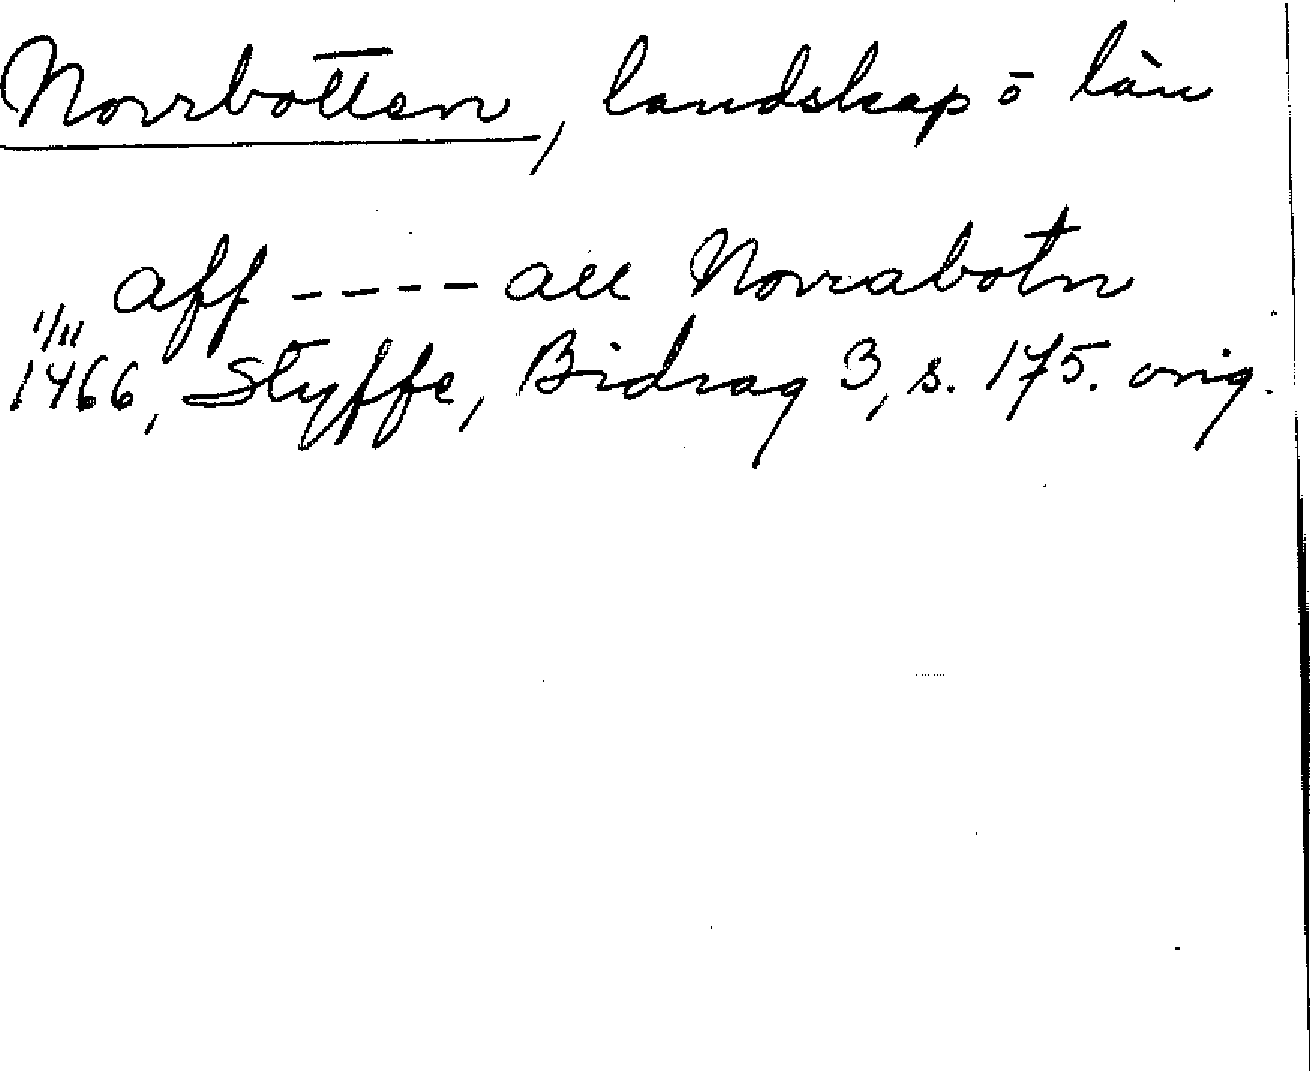 Norrbotten, landskap o län
aff ---- all Norrabotn
1/11
1466, Styffe, Bidrag 3, s. 175. orig.